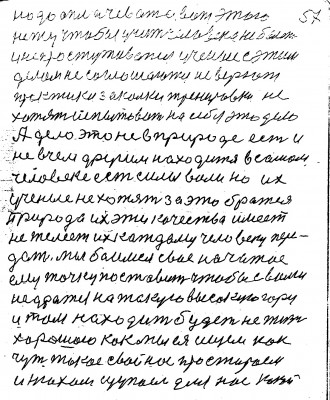 57
надо оплачевать а вот этого
нету чтобы учителю не было
учение с этим
делом не соглашаются неверют
практики закалки тренировки не
хотят испытовать на себе это дело
А дело это не в природе есть и
не в чем другим находится в самом
человеке есть силы воли но их
учение не хотят за это браться
природа их эти качества имеет
не жалеет их каждому человеку пере-
дать. мы боимся свое начатое
ему точку поставить чтобы своими
на такую высокую гору
и там находит будет не
хорошою как мы ся ищем как
чут такое свойное простираем
и нюхаем щупаем для нас